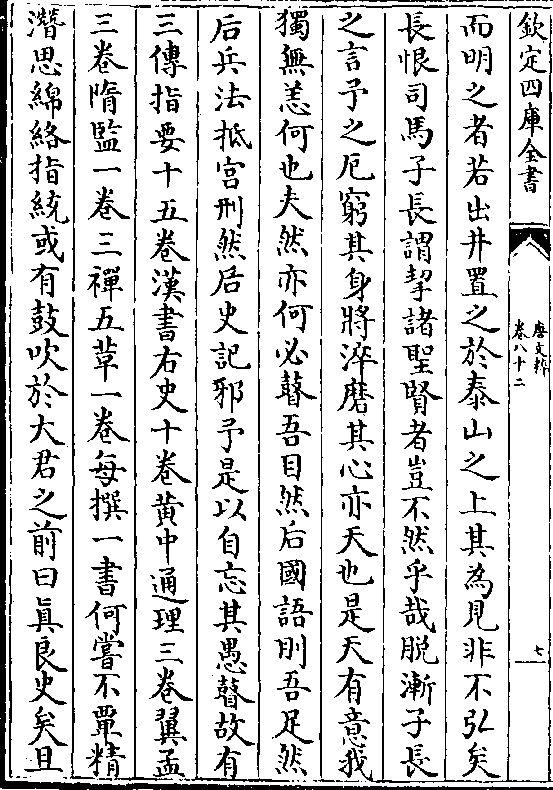 欽定四庫全書
唐文粹
卷八十二
七
而明之者若出井置之於泰山之上其為見非不弘矣
長恨司馬子長謂挈諸聖賢者豈不然乎哉脫漸子長
之言予之厄窮其身將淬磨其心亦天也是天有意我
獨無恙何也夫然亦何必瞽吾目然后國語刖吾足然
后兵法抵宮刑然后史記邪予是以自忘其愚瞽故有
三傳指要十五卷漢書右史十卷黄中通理三卷翼孟
三卷隋監一卷三禪五革一卷每撰一書何嘗不覃精
濳思綿絡指統或有鼓吹於大君之前曰真良史矣且